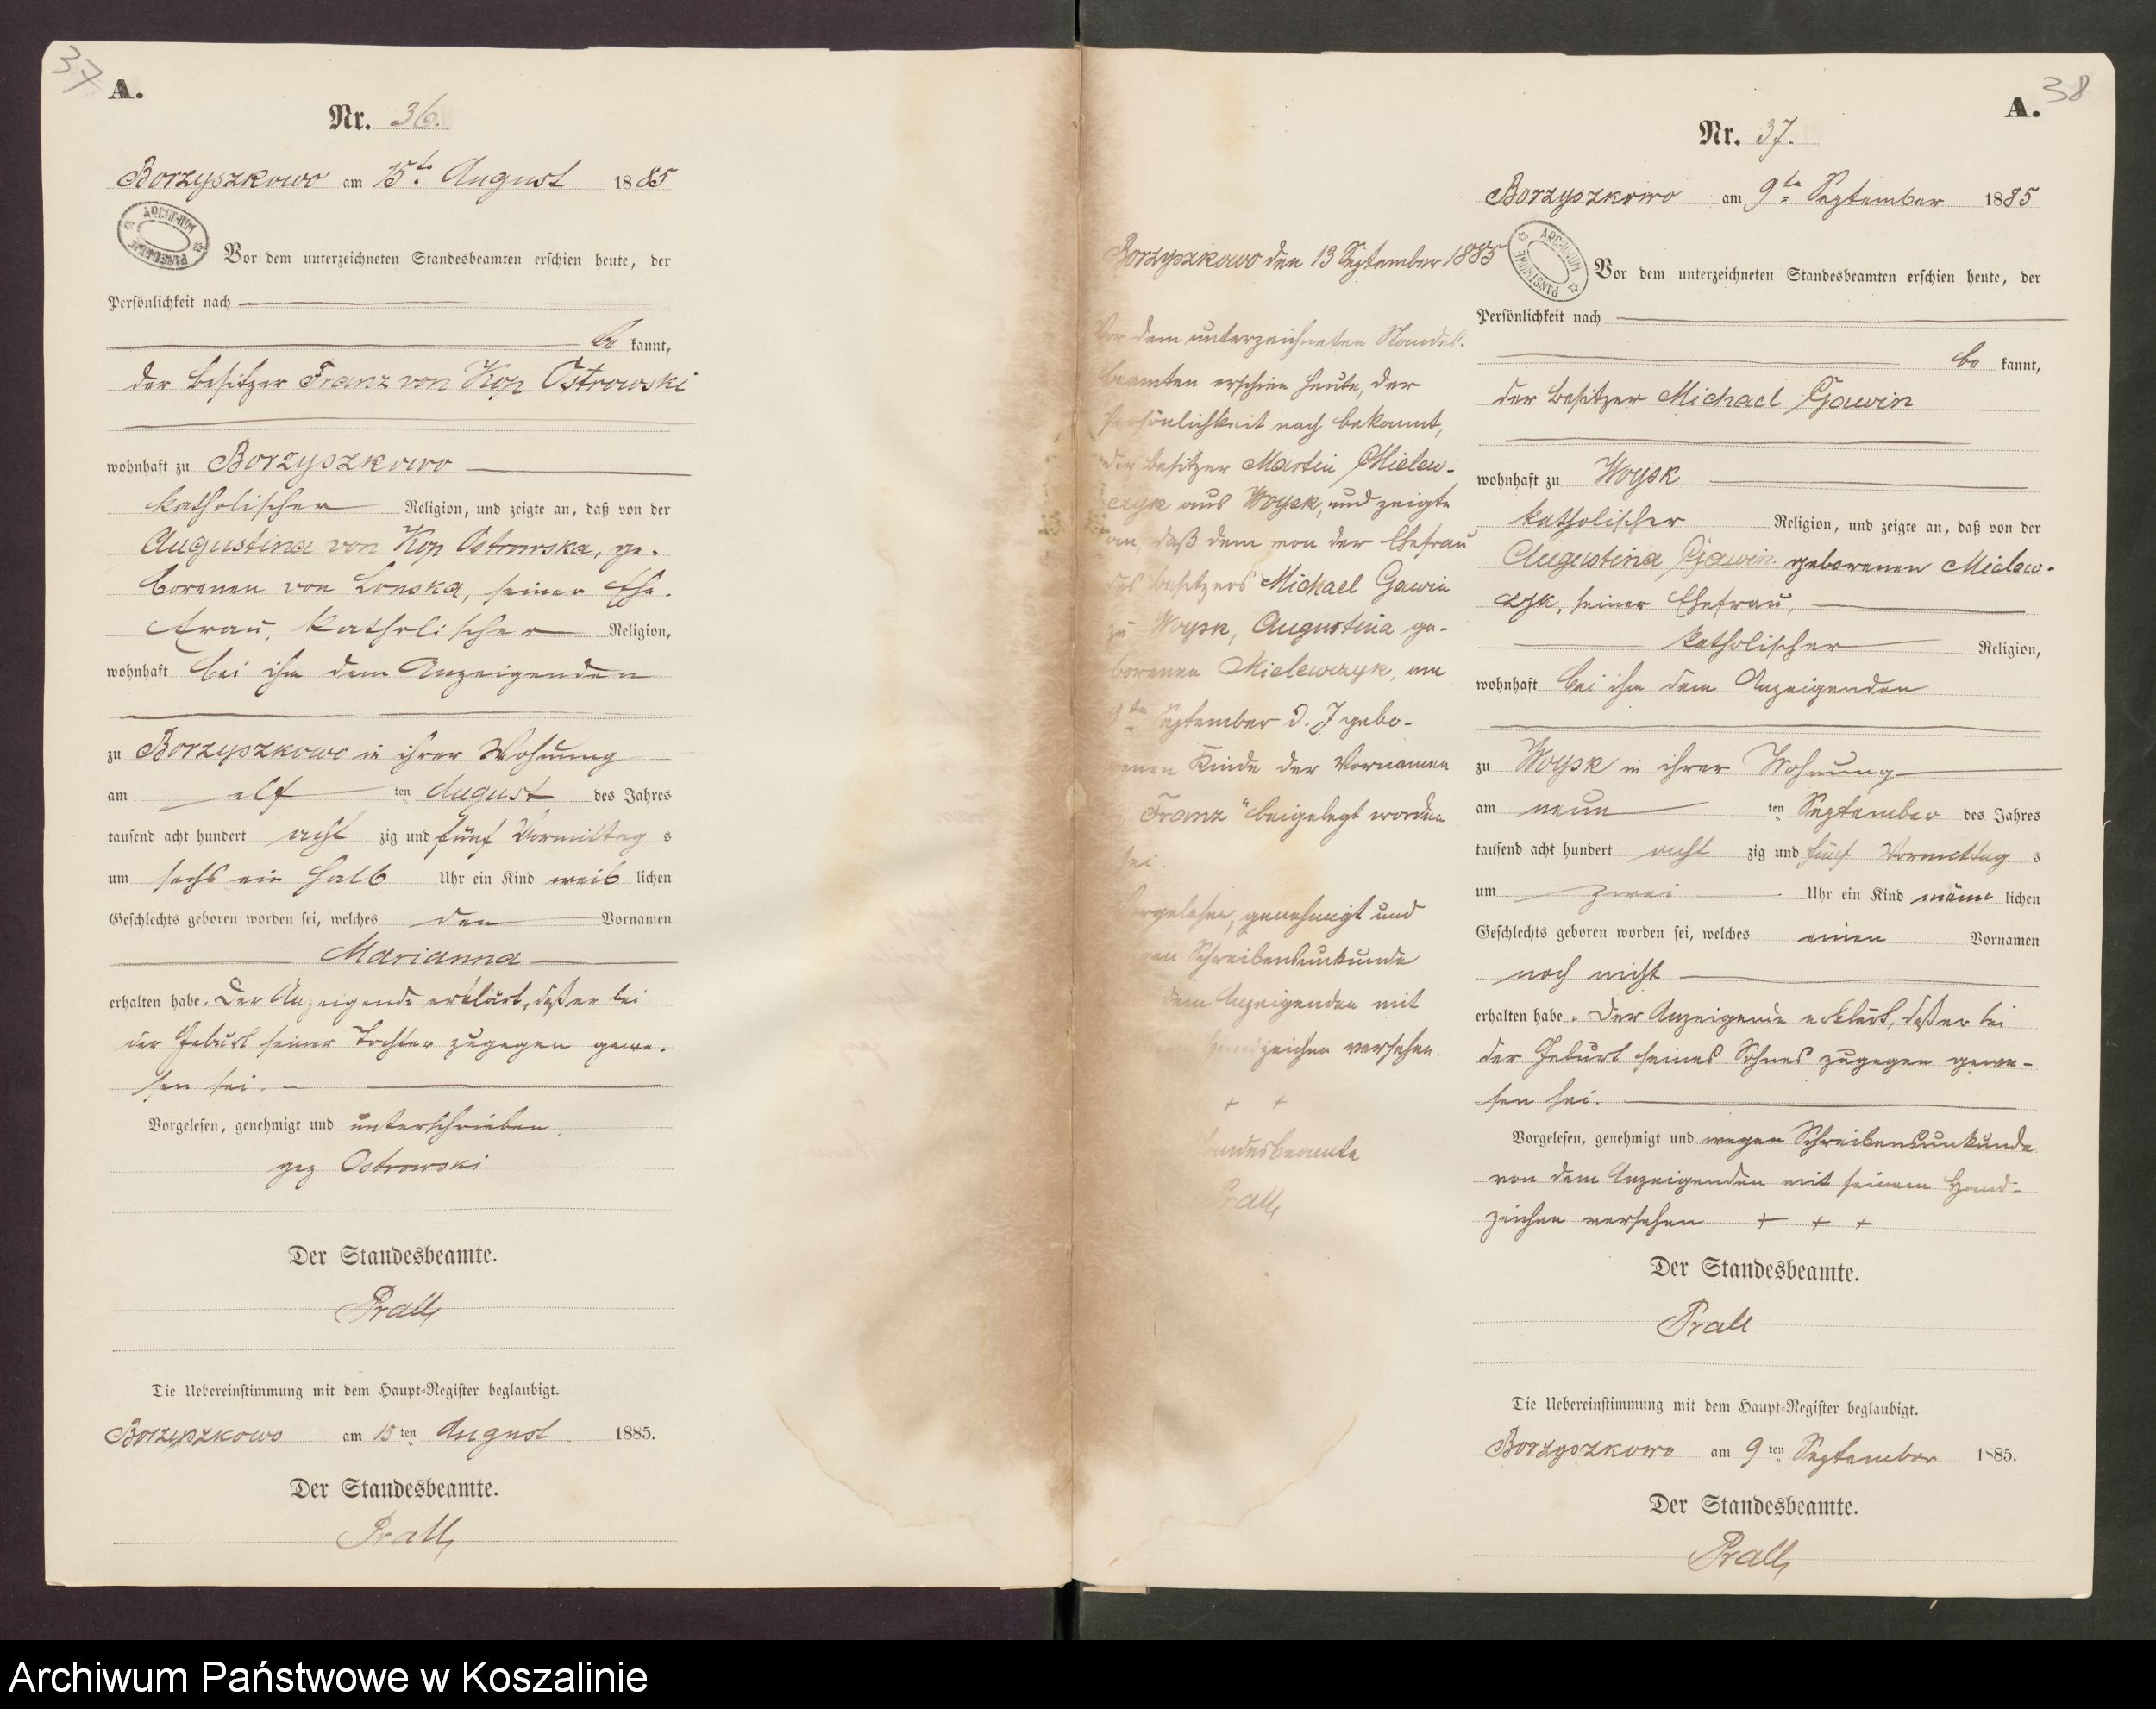 37
A.
Nr. 36.
Borzyszkowo am 15te August 1885
ARCHIWUM PAŃSTWOWE
Vor dem unterzeichneten Standesbeamten erschien heute, der
Persönlichkeit nach
be kannt,
der Besitzer Franz von Kop Ostrowski
wohnhaft zu Borzyszkowo
katholischer Religion, und zeigte an, daß von der
Augustina von Kop Ostrowska, ge-
borenen von Lonska, seiner Ehe-
frau, katholischer Religion,
wohnhaft bei ihm dem Anzeigenden
zu Borzyszkowo in ihrer Wohnung
am elf ten August des Jahres
tausend acht hundert acht zig und fünf Vormittag s
um sechs ein halb Uhr ein Kind weib lichen
Geschlechts geboren worden sei, welches den Vornamen
Marianna
erhalten habe. Der Anzeigende erklärt, daß er bei
der Geburt seiner Tochter zugegen gewe-
sen sei.
Vorgelesen, genehmigt und unterschrieben.
gez Ostrowski
Der Standesbeamte.
Prall
Die Uebereinstimmung mit dem Haupt-Register beglaubigt.
Borzyszkowo am 15ten August 1885.
Der Standesbeamte.
Prall
Borzyszkowo den 13 September 1885
Vor dem unterzeichneten Standes-
beamten erschien heute, der
Persönlichkeit nach bekannt,
der Besitzer Martin Mielew-
czyk aus Woysk, und zeigte
an, daß dem von der Ehefrau
des Besitzers Michael Gawin
zu Woysk, Augustina ge-
borenen Mielewczyk, am
9ten September d. J gebo-
renen Kinde der Vornamen
Franz" beigelegt worden
sei.
Vorgelesen, genehmigt und
Schreibensunkunde
dem Anzeigenden mit
Handzeichen versehen.
+ +
Standesbeamte
Prall
38
A.
Nr. 37.
Borzyszkowo am 9te September 1885
ARCHIWUM PAŃSTWOWE
Vor dem unterzeichneten Standesbeamten erschien heute, der
Persönlichkeit nach
be kannt,
der Besitzer Michael Gawin
wohnhaft zu Woysk
katholischer Religion, und zeigte an, daß von der
Augustina Gawin geborenen Mielew-
czyk, seiner Ehefrau,
katholischer Religion,
wohnhaft bei ihm dem Anzeigenden
zu Woysk in ihrer Wohnung
am neun ten September des Jahres
tausend acht hundert acht zig und fünf Vormittag s
um zwei Uhr ein Kind männ lichen
Geschlechts geboren worden sei, welches einen Vornamen
noch nicht
erhalten habe. Der Anzeigende erklärt, daß er bei
der Geburt seines Sohnes zugegen gewe-
sen sei.
Vorgelesen, genehmigt und wegen Schreibensunkunde
von dem Anzeigenden mit seinem Hand-
zeichen versehen + + +
Der Standesbeamte.
Prall
Die Uebereinstimmung mit dem Haupt-Register beglaubigt.
Borzyszkowo am 9ten September 1885.
Der Standesbeamte.
Prall
Archiwum Państwowe w Koszalinie